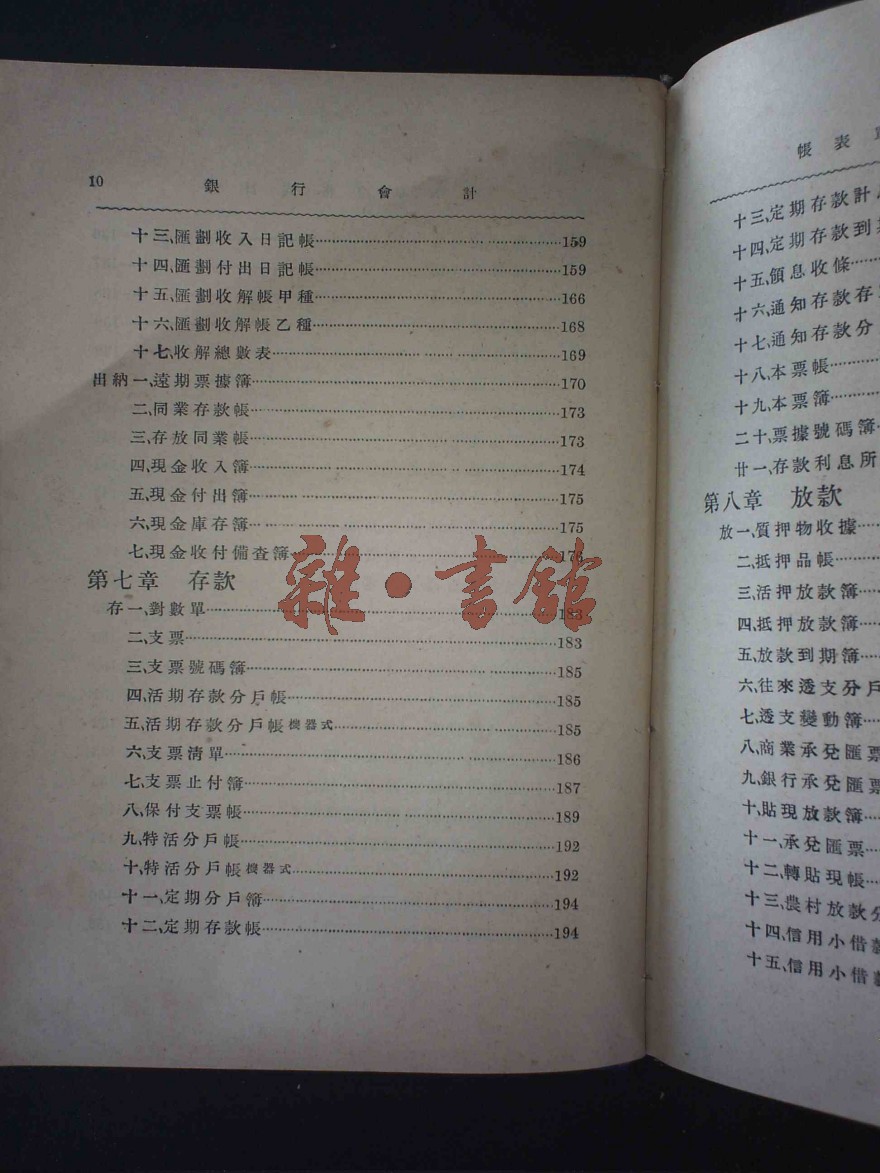 10 銀行會計
十三、匯劃收入日記帳……159
十四、匯劃付出日記帳……159
十五、匯劃收解帳甲種……166
十六、匯劃收解帳乙種……168
十七、收解總數表……169
出納一、遠期票據簿……170
二、同業存款帳……173
三、存放同業帳……173
四、現金收入簿……174
五、現金付出簿……175
六、現金庫存簿……175
七、現金收付備查簿……176
第七章 存款
存一、對數單……183
二、支票……183
三、支票號碼簿……185
四、活期存款分戶帳……185
五、活期存款分戶帳機器式……185
六、支票清單……186
七、支票止付簿……187
八、保付支票帳……189
九、特活分戶帳……192
十、特活分戶帳機器式……192
十一、定期分戶簿……194
十二、定期存款帳……194
雜·書館
帳表
十三、定期存款計
十四、定期存款到
十五、領息收條……
十六、通知存款存
十七、通知存款分
十八、本票帳……
十九、本票簿……
二十、票據號碼簿
廿一、存款利息所
第八章 放款
放一、質押物收據……
二、抵押品帳……
三、活押放款簿……
四、抵押放款簿……
五、放款到期簿……
六、往來透支分戶
七、透支變動簿……
八、商業承兌匯票
九、銀行承兌匯票
十、貼現放款簿……
十一、承兌匯票……
十二、轉貼現帳……
十三、農村放款分
十四、信用小借款
十五、信用小借款